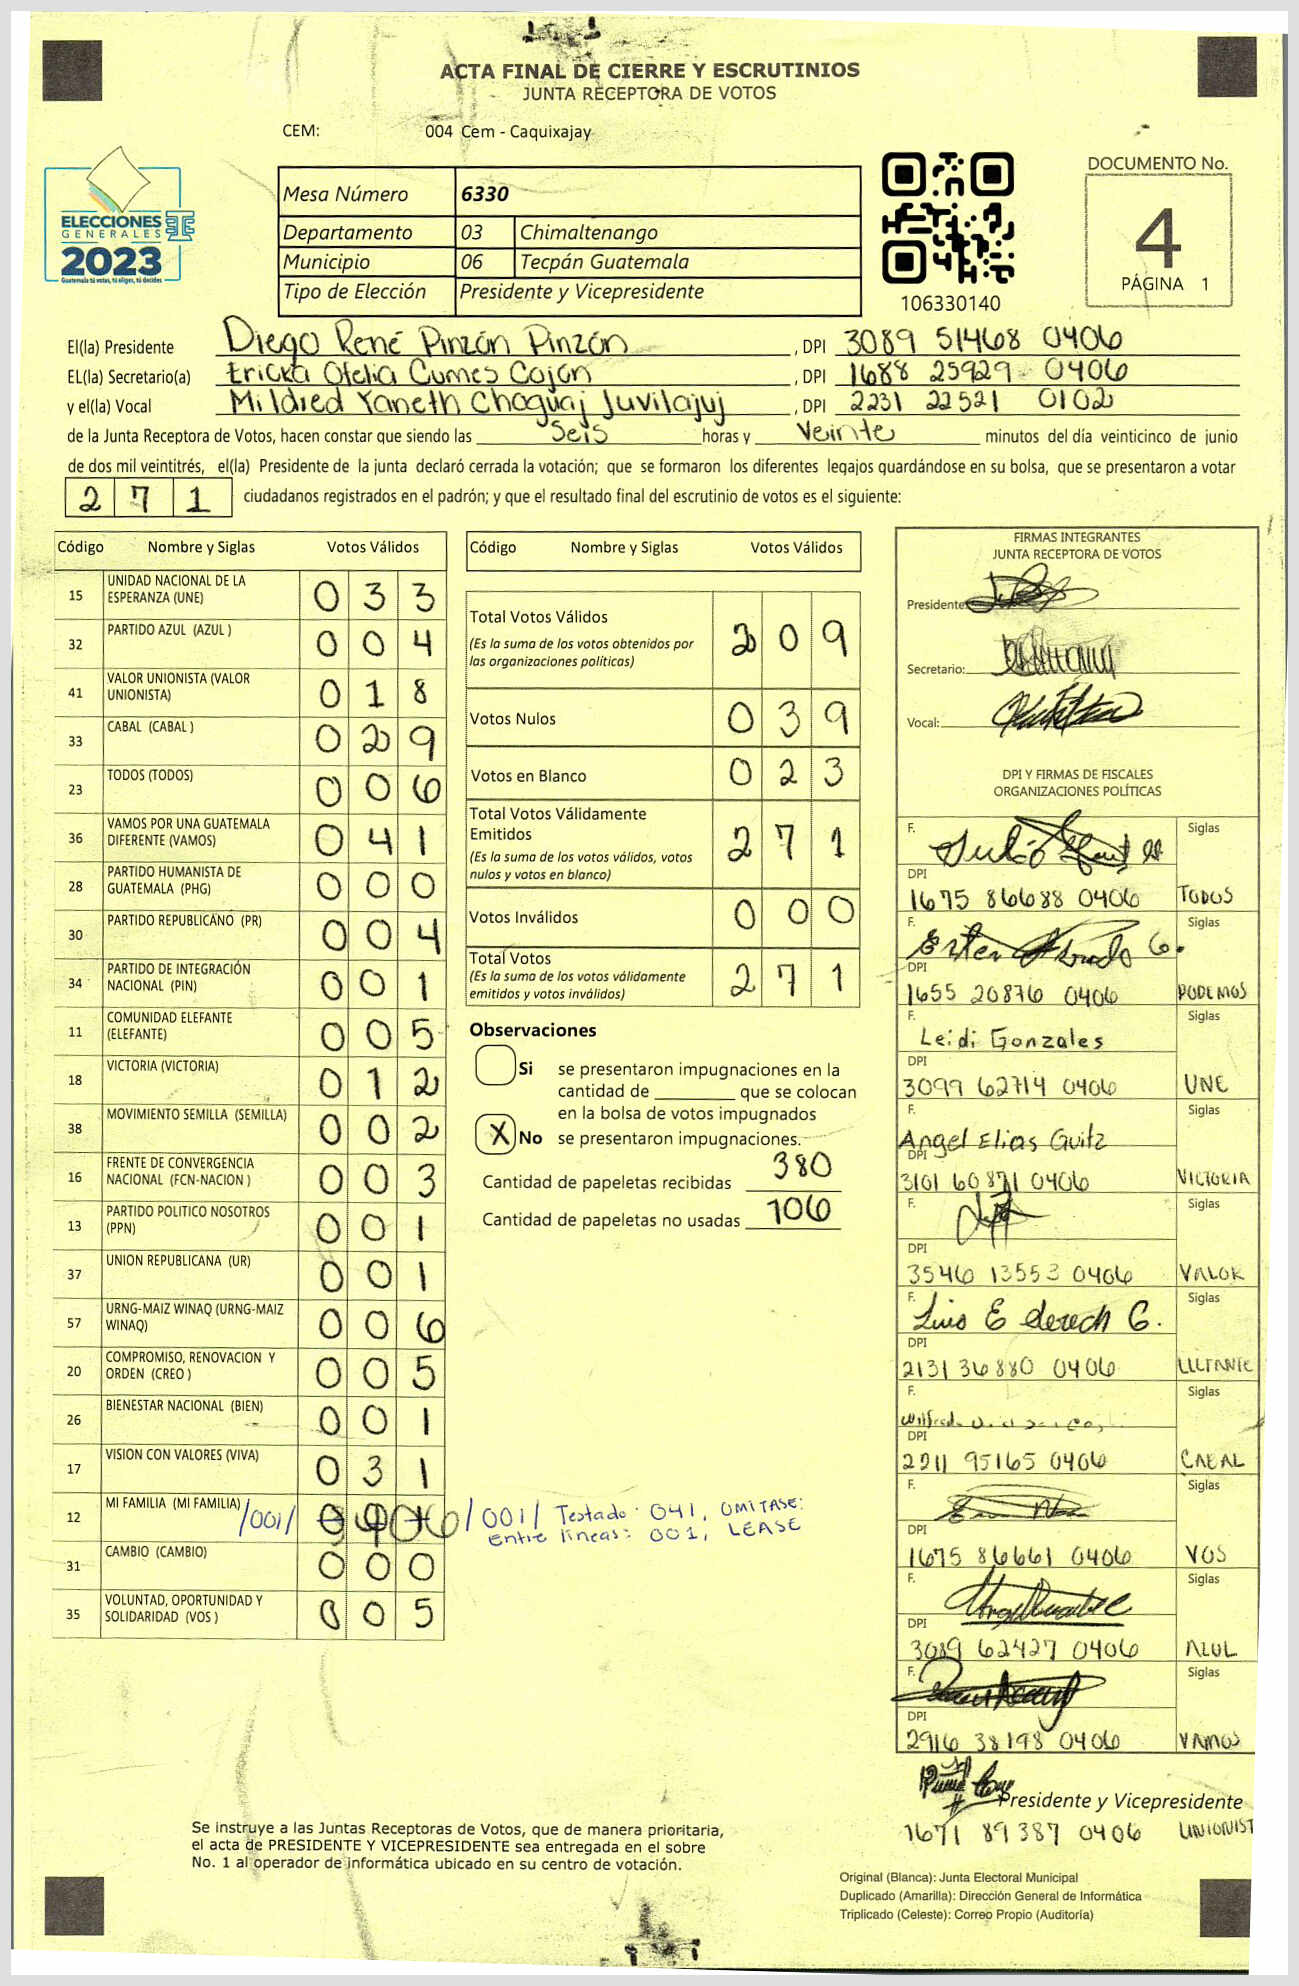 ACTA FINAL DE CIERRE Y ESCRUTINIOS
JUNTA RECEPTORA DE VOTOS
CEM: 004 Cem - Caquixajay
ELECCIONES
GENERALES
2023
Guatemala tú votas, tú eliges, tú decides
Mesa Número 6330
Departamento 03 Chimaltenango
Municipio 06 Tecpán Guatemala
Tipo de Elección Presidente y Vicepresidente
106330140
DOCUMENTO No.
4
PÁGINA 1
El(la) Presidente Diego René Pinzón Pinzón , DPI 3089 51468 0406
EL(la) Secretario(a) Ericka Ofelia Cumes Cojón , DPI 1688 25929 0406
y el(la) Vocal Mildred Yaneth Choguaj Juvilajuj , DPI 2231 22521 0102
de la Junta Receptora de Votos, hacen constar que siendo las Seis horas y Veinte minutos del día veinticinco de junio
de dos mil veintitrés, el(la) Presidente de la junta declaró cerrada la votación; que se formaron los diferentes legajos guardándose en su bolsa, que se presentaron a votar
2 7 1 ciudadanos registrados en el padrón; y que el resultado final del escrutinio de votos es el siguiente:
Código Nombre y Siglas Votos Válidos
15 UNIDAD NACIONAL DE LA ESPERANZA (UNE) 0 3 3
32 PARTIDO AZUL (AZUL ) 0 0 4
41 VALOR UNIONISTA (VALOR UNIONISTA) 0 1 8
33 CABAL (CABAL ) 0 2 9
23 TODOS (TODOS) 0 0 6
36 VAMOS POR UNA GUATEMALA DIFERENTE (VAMOS) 0 4 1
28 PARTIDO HUMANISTA DE GUATEMALA (PHG) 0 0 0
30 PARTIDO REPUBLICANO (PR) 0 0 4
34 PARTIDO DE INTEGRACIÓN NACIONAL (PIN) 0 0 1
11 COMUNIDAD ELEFANTE (ELEFANTE) 0 0 5
18 VICTORIA (VICTORIA) 0 1 2
38 MOVIMIENTO SEMILLA (SEMILLA) 0 0 2
16 FRENTE DE CONVERGENCIA NACIONAL (FCN-NACION ) 0 0 3
13 PARTIDO POLITICO NOSOTROS (PPN) 0 0 1
37 UNION REPUBLICANA (UR) 0 0 1
57 URNG-MAIZ WINAQ (URNG-MAIZ WINAQ) 0 0 6
20 COMPROMISO, RENOVACION Y ORDEN (CREO ) 0 0 5
26 BIENESTAR NACIONAL (BIEN) 0 0 1
17 VISION CON VALORES (VIVA) 0 3 1
12 MI FAMILIA (MI FAMILIA) /001/ /001/ Testado: 041, OMITASE:
Entre líneas: 001, LEASE
31 CAMBIO (CAMBIO) 0 0 0
35 VOLUNTAD, OPORTUNIDAD Y SOLIDARIDAD (VOS ) 0 0 5
Código Nombre y Siglas Votos Válidos
Total Votos Válidos 2 0 9
(Es la suma de los votos obtenidos por
las organizaciones políticas)
Votos Nulos 0 3 9
Votos en Blanco 0 2 3
Total Votos Válidamente
Emitidos 2 7 1
(Es la suma de los votos válidos, votos
nulos y votos en blanco)
Votos Inválidos 0 0 0
Total Votos 2 7 1
(Es la suma de los votos válidamente
emitidos y votos inválidos)
Observaciones
Si se presentaron impugnaciones en la
cantidad de ________ que se colocan
en la bolsa de votos impugnados
X No se presentaron impugnaciones.
Cantidad de papeletas recibidas 380
Cantidad de papeletas no usadas 106
FIRMAS INTEGRANTES
JUNTA RECEPTORA DE VOTOS
Presidente:
Secretario:
Vocal:
DPI Y FIRMAS DE FISCALES
ORGANIZACIONES POLÍTICAS
F. Siglas
DPI
1675 86688 0406 TODOS
F. Siglas
DPI
1655 20876 0406 PODEMOS
F. Leidi Gonzales Siglas
DPI
3099 62714 0406 UNE
F. Angel Elias Guitz Siglas
DPI
3101 60871 0406 VICTORIA
F. Siglas
DPI
3546 13553 0406 VALOR
F. Luis E Siglas
DPI
2131 36880 0406
F. Siglas
DPI
2211 95165 0406 CABAL
F. Siglas
DPI
1675 86661 0406 VOS
F. Siglas
DPI
3089 62427 0406 AZUL
F. Siglas
DPI
2916 38198 0406 VAMOS
Presidente y Vicepresidente
1671 89387 0406 UNIONIST
Se instruye a las Juntas Receptoras de Votos, que de manera prioritaria,
el acta de PRESIDENTE Y VICEPRESIDENTE sea entregada en el sobre
No. 1 al operador de informática ubicado en su centro de votación.
Original (Blanca): Junta Electoral Municipal
Duplicado (Amarilla): Dirección General de Informática
Triplicado (Celeste): Correo Propio (Auditoría)